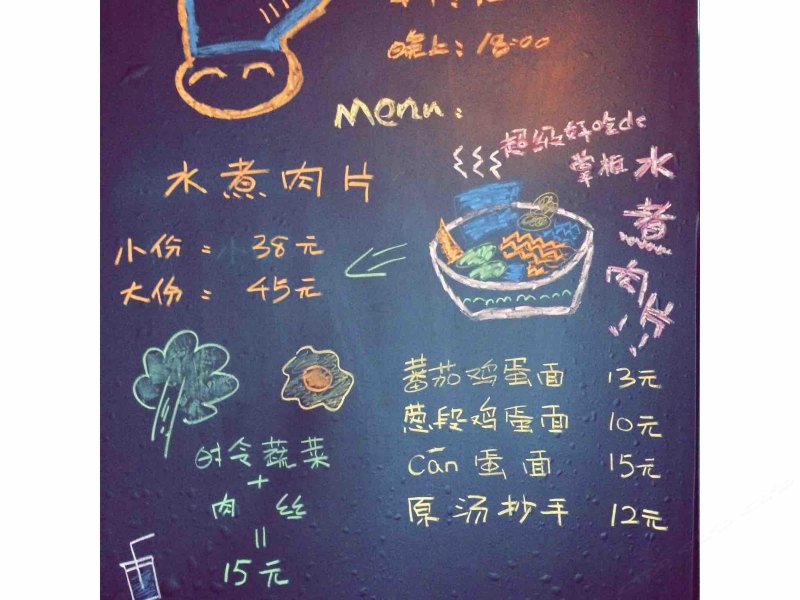 晚上：18:00
Menu：
超级好吃de
掌柜水煮肉片！！
水煮肉片
小份：38元
大份：45元
蕃茄鸡蛋面 13元
葱段鸡蛋面 10元
Cān蛋面 15元
原汤抄手 12元
时令蔬菜
+
肉丝
=
15元